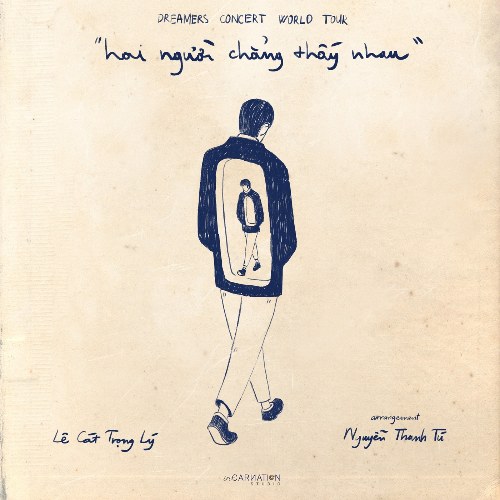 DREAMERS CONCERT WORLD TOUR
"hai người chẳng thấy nhau"
Lê Cát Trọng Lý
arrangement
Nguyễn Thanh Tú
inCARNATION
STUDIO